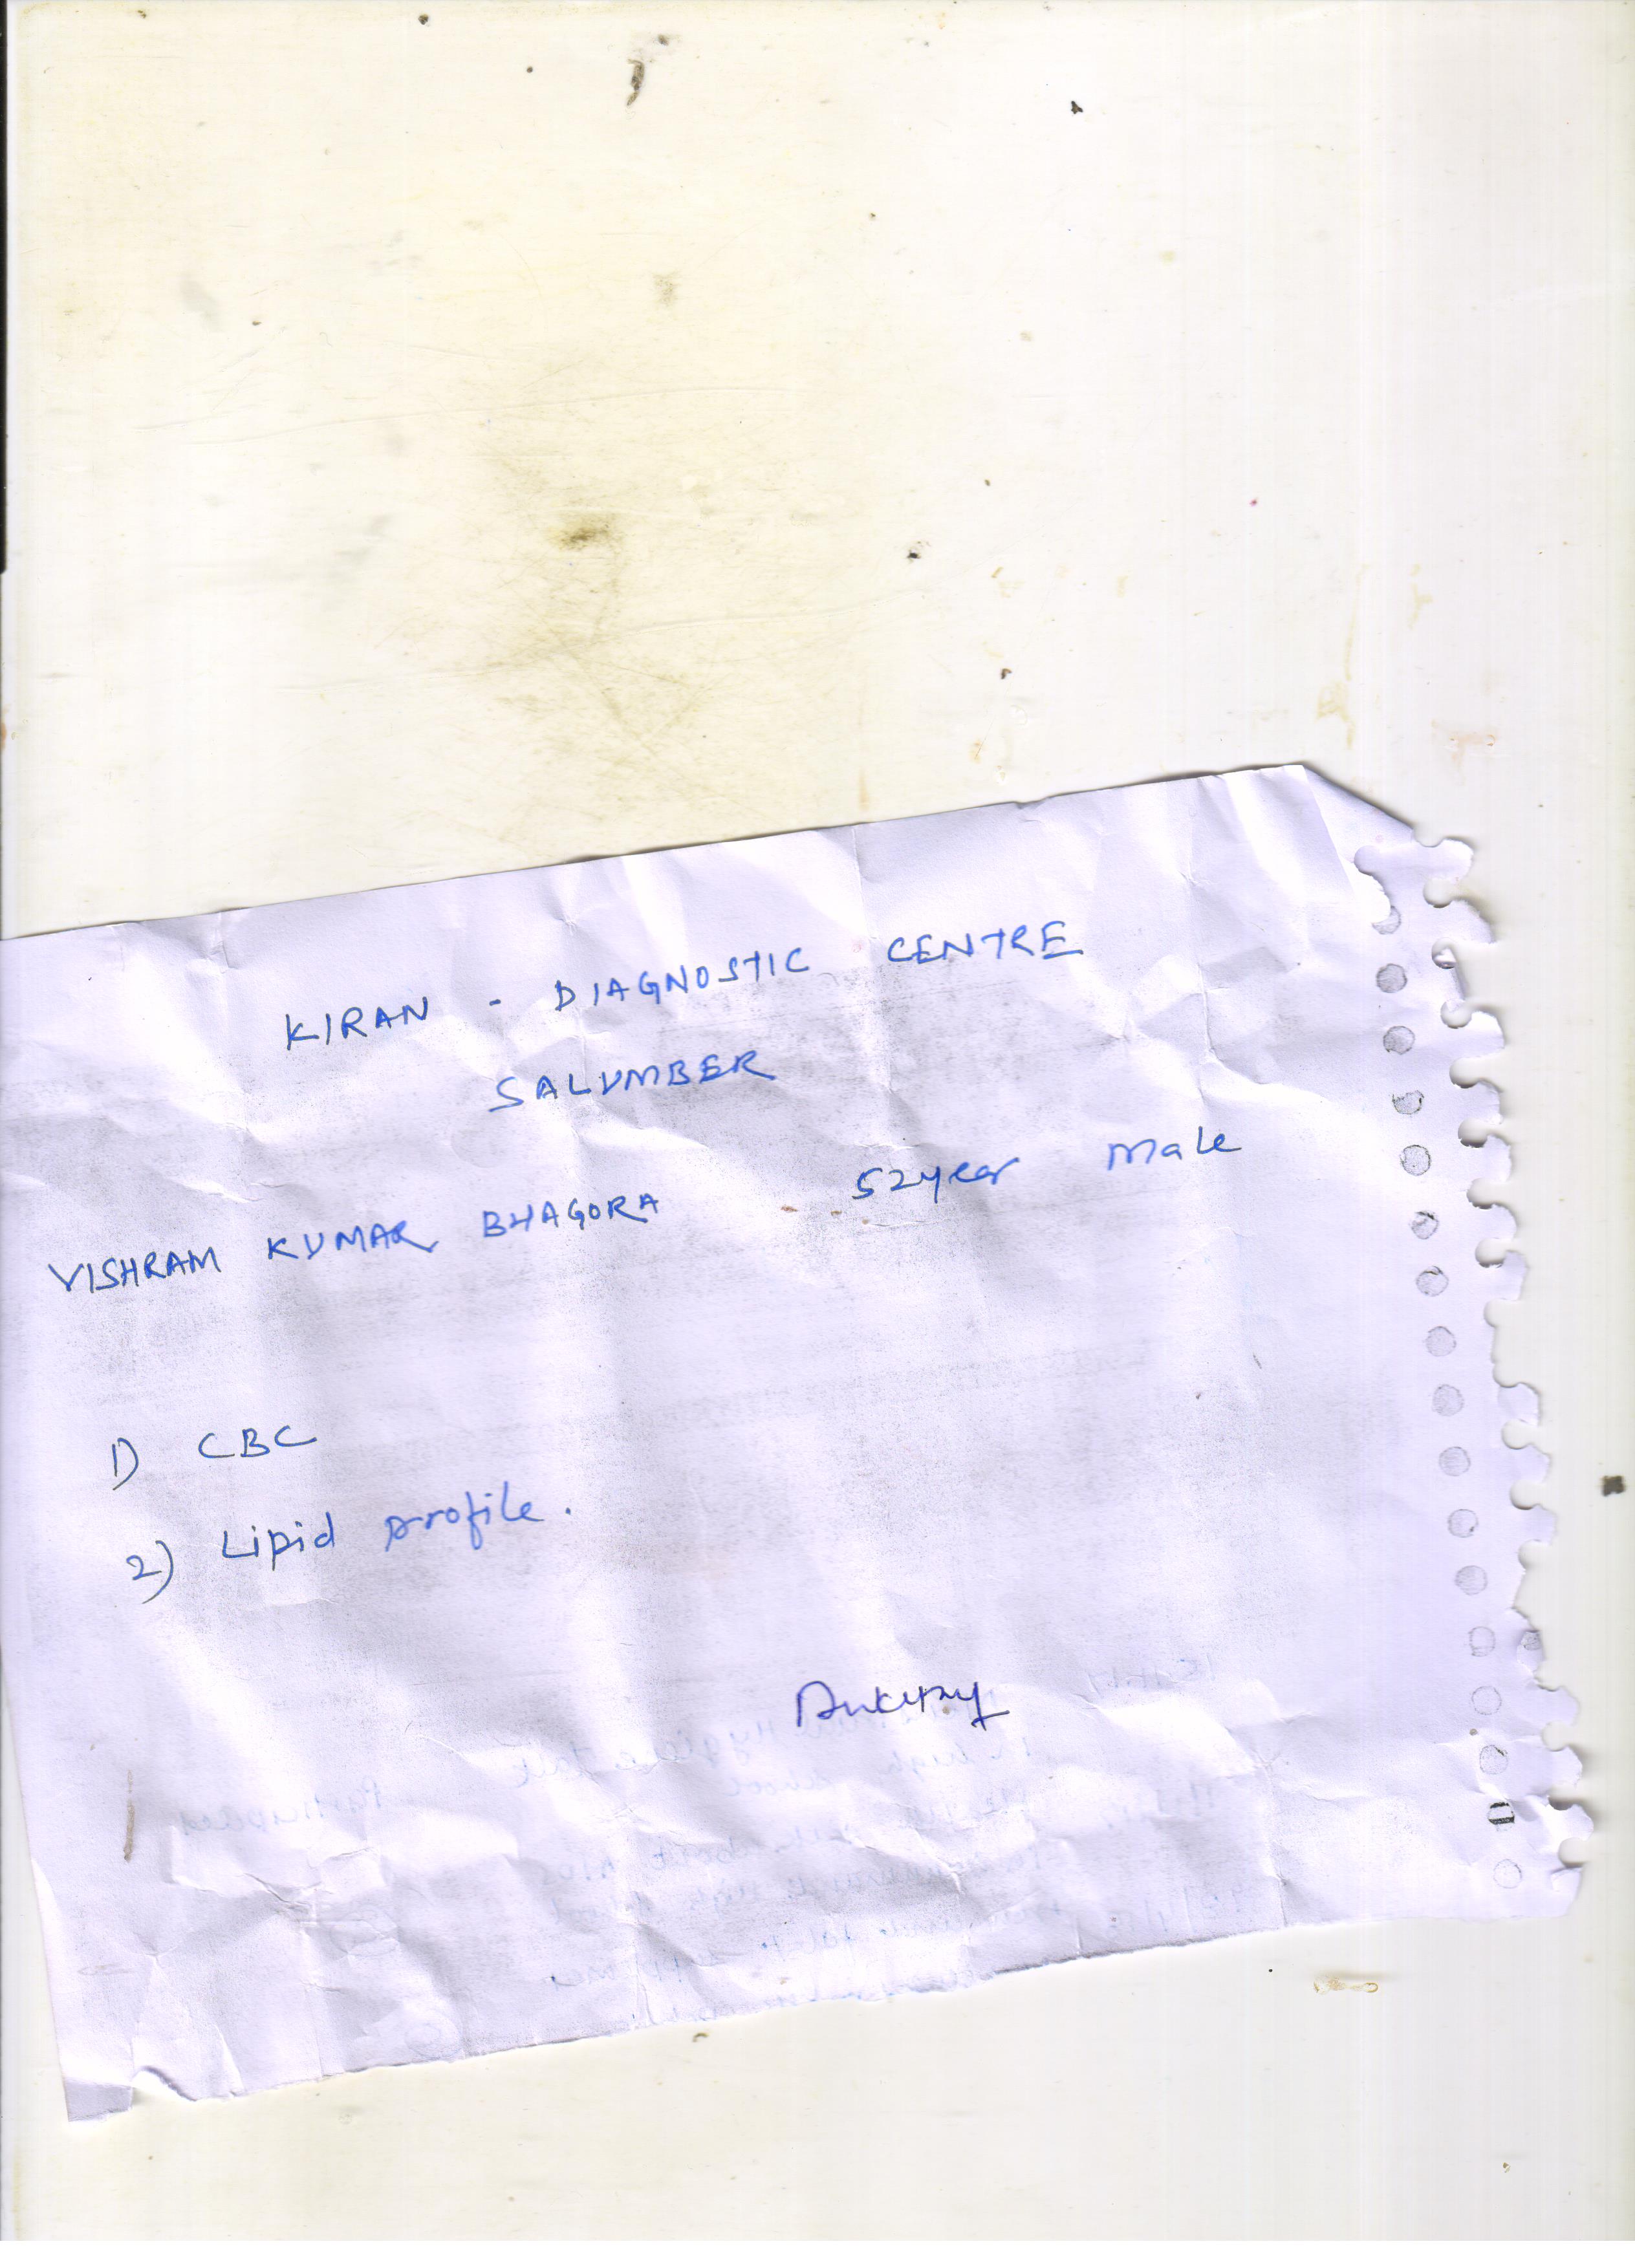 KIRAN - DIAGNOSTIC CENTRE
SALUMBER
VISHRAM KUMAR BHAGORA - 52 year Male
1) CBC
2) Lipid profile.